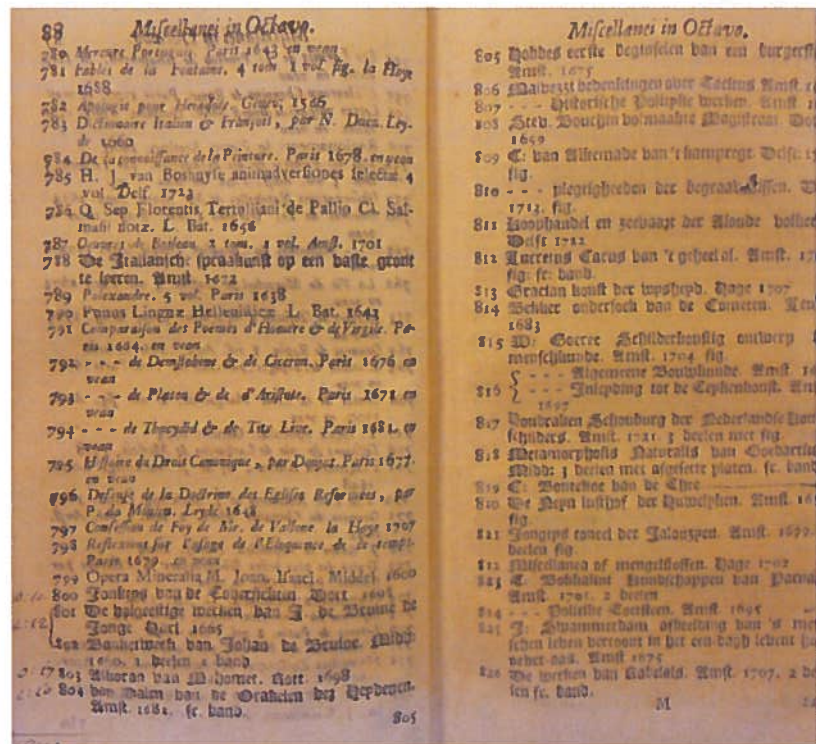 88 Miscellanei in Octavo.
780 Mercure Portugais, Paris 1643 en veau
781 Fables de la Fontaine. 4 tom 1 vol. fig. la Haye
1688
782 Apologie pour Herodote. 1566
783 Dictionaire Italien & François, par N. Duez. Ley-
de 1660
784 De la connaissance de la Peinture. Paris 1678. en veau
785 H. J. van Bashuyse animadversiones selectæ 4
vol. Delf. 1723
786 Q. Sep. Florentis Tertulliani de Pallio Cl. Sal-
masii notæ. L. Bat. 1656
787 Oeuvres de Boileau 2 tom. 1 vol. Amst. 1701
788 De Italiansche spraakunst op een vaste gront
te leeren. Amst. 1672
789 Polexandre. 5 vol. Paris 1638
790 Funus Linguæ Hellenisticæ L. Bat. 1643
791 Comparaison des Poëmes d'Homere & de Virgile. Pa-
ris 1664. en veau
792 - - - de Demosthene & de Ciceron. Paris 1676 en
veau
793 - - - de Platon & de d'Aristote. Paris 1671 en
veau
794 - - - de Thucydid & de Tite Live. Paris 1681. en
veau
795 Histoire du Droit Canonique, par Doujat. Paris 1677.
en veau
796 Defense de la Doctrine des Eglises Reformées, par
P. du Moulin. 1648
797 Confession de Foy de Mr. de Valione. la Haye 1707
798 Reflexions sur l'usage de l'Eloquence de ce temps
Paris 1679. en veau
799 Opera Mineralia M. Joan. Isaaci. Middel. 1600
800 Jonktys van de Toversiekten. Dort
801 De volgeestige werken van J. de Bruine de
Jonge Harl. 1665
802 Bankerwerk van Johan de Brune. Midd.
1660. 2 deelen 1 band
803 Alkoran van Mahomet. Rott. 1698
804 van Dalen van de Orakelen der Heydenen.
Amst. 1682. fr. band.
805
Miscellanei in Octavo.
805 Hobbes eerste beginselen van een burgerst
Amst. 1675
806 Malvezzi bedenkingen over Tacitus Amst.
807 - - - Historische Politykse werken. Amst.
808 Stev. Bouchin volmaakte Magistraat. Do
1659
809 C: van Alkemade van 't kampregt Delft
fig.
810 - - - plegtigheeden der begraaf issen. D
1713. fig.
811 Koophandel en zeevaart der Aloude volker
Delft 1722
812 Lucretius Carus van 't geheel al. Amst.
fig. fr. band.
813 Gracian konst der wysheyd. Hage 1707
814 Bekker ondersoek van de Cometen.
1683
815 W: Goeree Schilderkonstig ontwerp
menschkunde. Amst. 1704 fig.
- - - Algemeene Bouwkunde. Amst.
816 - - - Inleyding tot de Teykenkonst. Am
1697
817 Houbraken Schouburg der Nederlandse kon
schilders. Amst. 1721. 3 deelen met fig.
818 Metamorphosis Naturalis van Goedaert
Midd: 3 deelen met afgesette platen. fr. band
819 C: Bontekoe van de Thee
820 De Neyn lusthof der Huwelyken. Amst.
fig.
821 Jonktys toneel der Jalouzyen. Amst.
deelen fig.
822 Miscellanea of mengelstoffen. Hage 1702
823 T. Bokkalini kundschappen van Parna
Amst. 1701. 2 deelen
824 - - - Politike Toetsteen. Amst. 1695
825 J: Swammerdam afbeelding van 's me
schen leven vertoont in het een dagh levent
oever-aas. Amst 1675
826 De werken van Rabelais. Amst. 1707. 2 de
len fr. band.
M